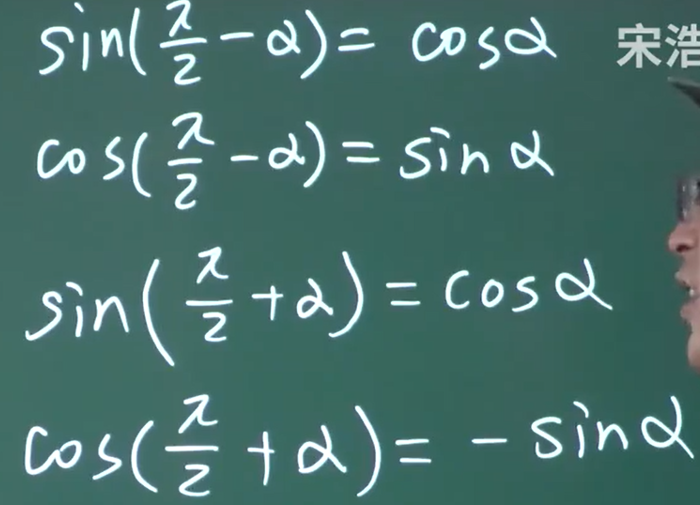 sin(π/2 - α) = cosα
宋浩
cos(π/2 - α) = sin α
sin(π/2 + α) = cos α
cos(π/2 + α) = - sin α